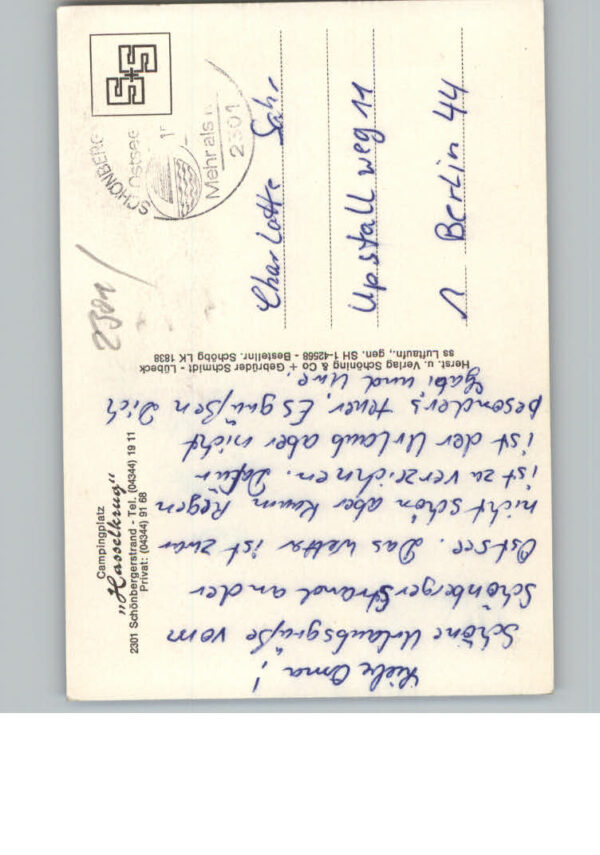 Campingplatz
„Hasselkrug“
2301 Schönbergerstrand - Tel. (04344) 19 11
Privat: (04344) 91 68
Liebe Oma!
Schöne Urlaubsgrüße vom
Schönberger Strand an der
Ostsee. Das Wetter ist zwar
nicht schön aber kaum Regen
ist zu verzeichnen. Dafür
ist der Urlaub aber nicht
besonders teuer. Es grüßen Dich
Gabi und Uwe.
Herst. u. Verlag Schöning & Co + Gebrüder Schmidt - Lübeck
ss Luftaufn., gen. SH 1-42568 - Bestellnr. Schöbg LK 1838
2301
SCHÖNBERG
Ostsee
Mehr als
2301
Charlotte
Upstallweg 11
1 Berlin 44